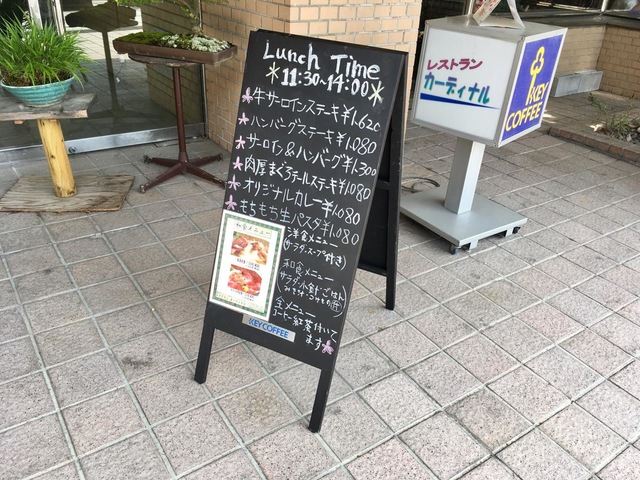 Lunch Time
＊11:30~14:00＊
牛サーロインステーキ¥1.620
ハンバーグステーキ¥1.080
サーロイン&ハンバーグ¥1.300
肉厚まぐろテールステーキ¥1080
オリジナルカレー¥1.080
もちもち生パスタ¥1.080
洋食メニュー
(サラダ、スープ付き)
和食メニュー
サラダ・小鉢・ごはん
みそ汁・つけもの付
全メニュー
コーヒー紅茶付いて
ます
和食メニュー
KEY COFFEE
レストラン
カーディナル
KEY
COFFEE